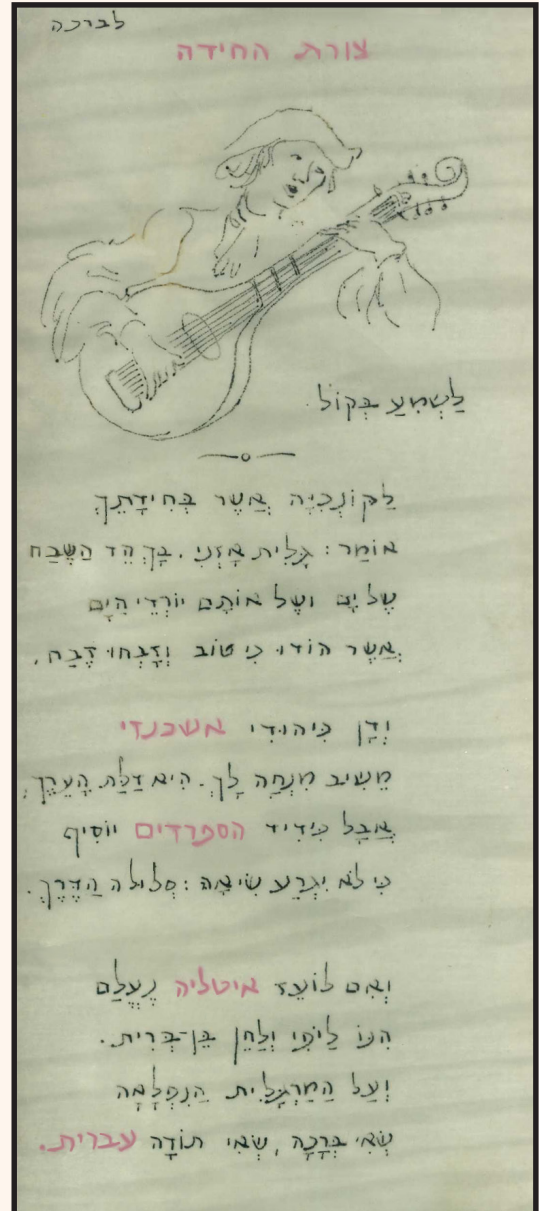 לברכה
צורת החידה
לַשְׁמִעַ בְּקוֹל.
לַקּוֹנְכִיָּה אֲשֶׁר בְּחִידָתֵךְ
אוֹמַר: גָּלִית אָזְנִי. בָּךְ הֵד הַשֶּׁבַח
שֶׁל יָם וְשֶׁל אוֹתָם יוֹרְדֵי הַיָּם
אֲשֶׁר הוֹדוּ כִּי טוֹב וְזָבְחוּ זֶבַח,
וְדָן כִּיהוּדִי אשכנזי
מֵשִׁיב מִנְחָה לָךְ. הִיא דַּלַּת הָעֵרֶךְ;
אֲבָל כִּידִיד הספרדים יוֹסִיף
כִּי לֹא יִגְרַע שִׂיאָהּ: סְלוּלָה הַדֶּרֶךְ.
וְאִם לוֹעֵז איטליה נֶעְלַם
הִנּוֹ לַיֹּפִי וְלַחֵן בֶּן־בְּרִית.
וְעַל הַמַּרְגָּלִית הַנִּפְלָאָה
שְׂאִי בְּרָכָה, שְׂאִי תּוֹדָה עברית.